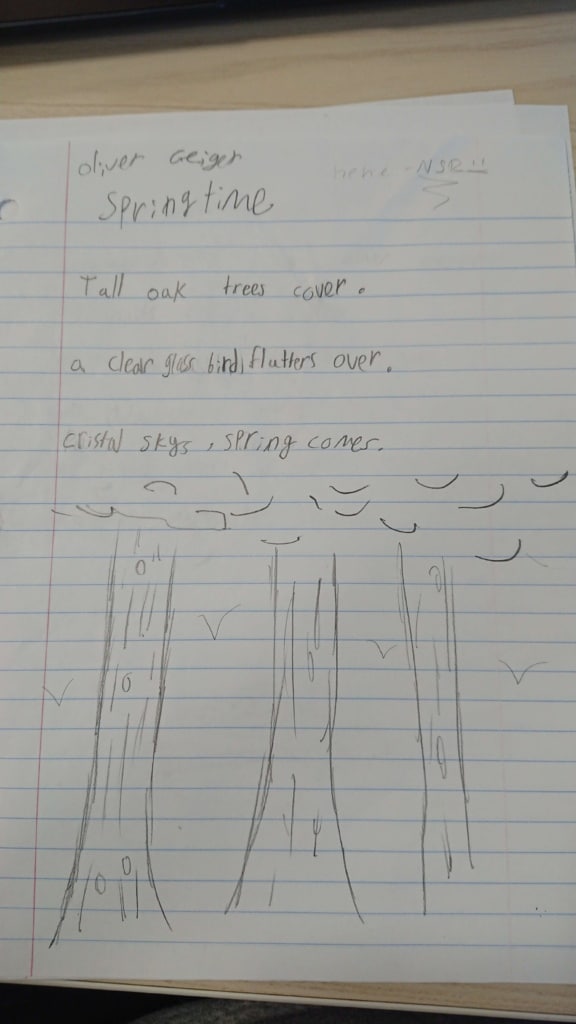 oliver Geiger
Springtime
Tall oak trees cover.
a clear glass bird, flutters over.
cristal skys, spring comes.